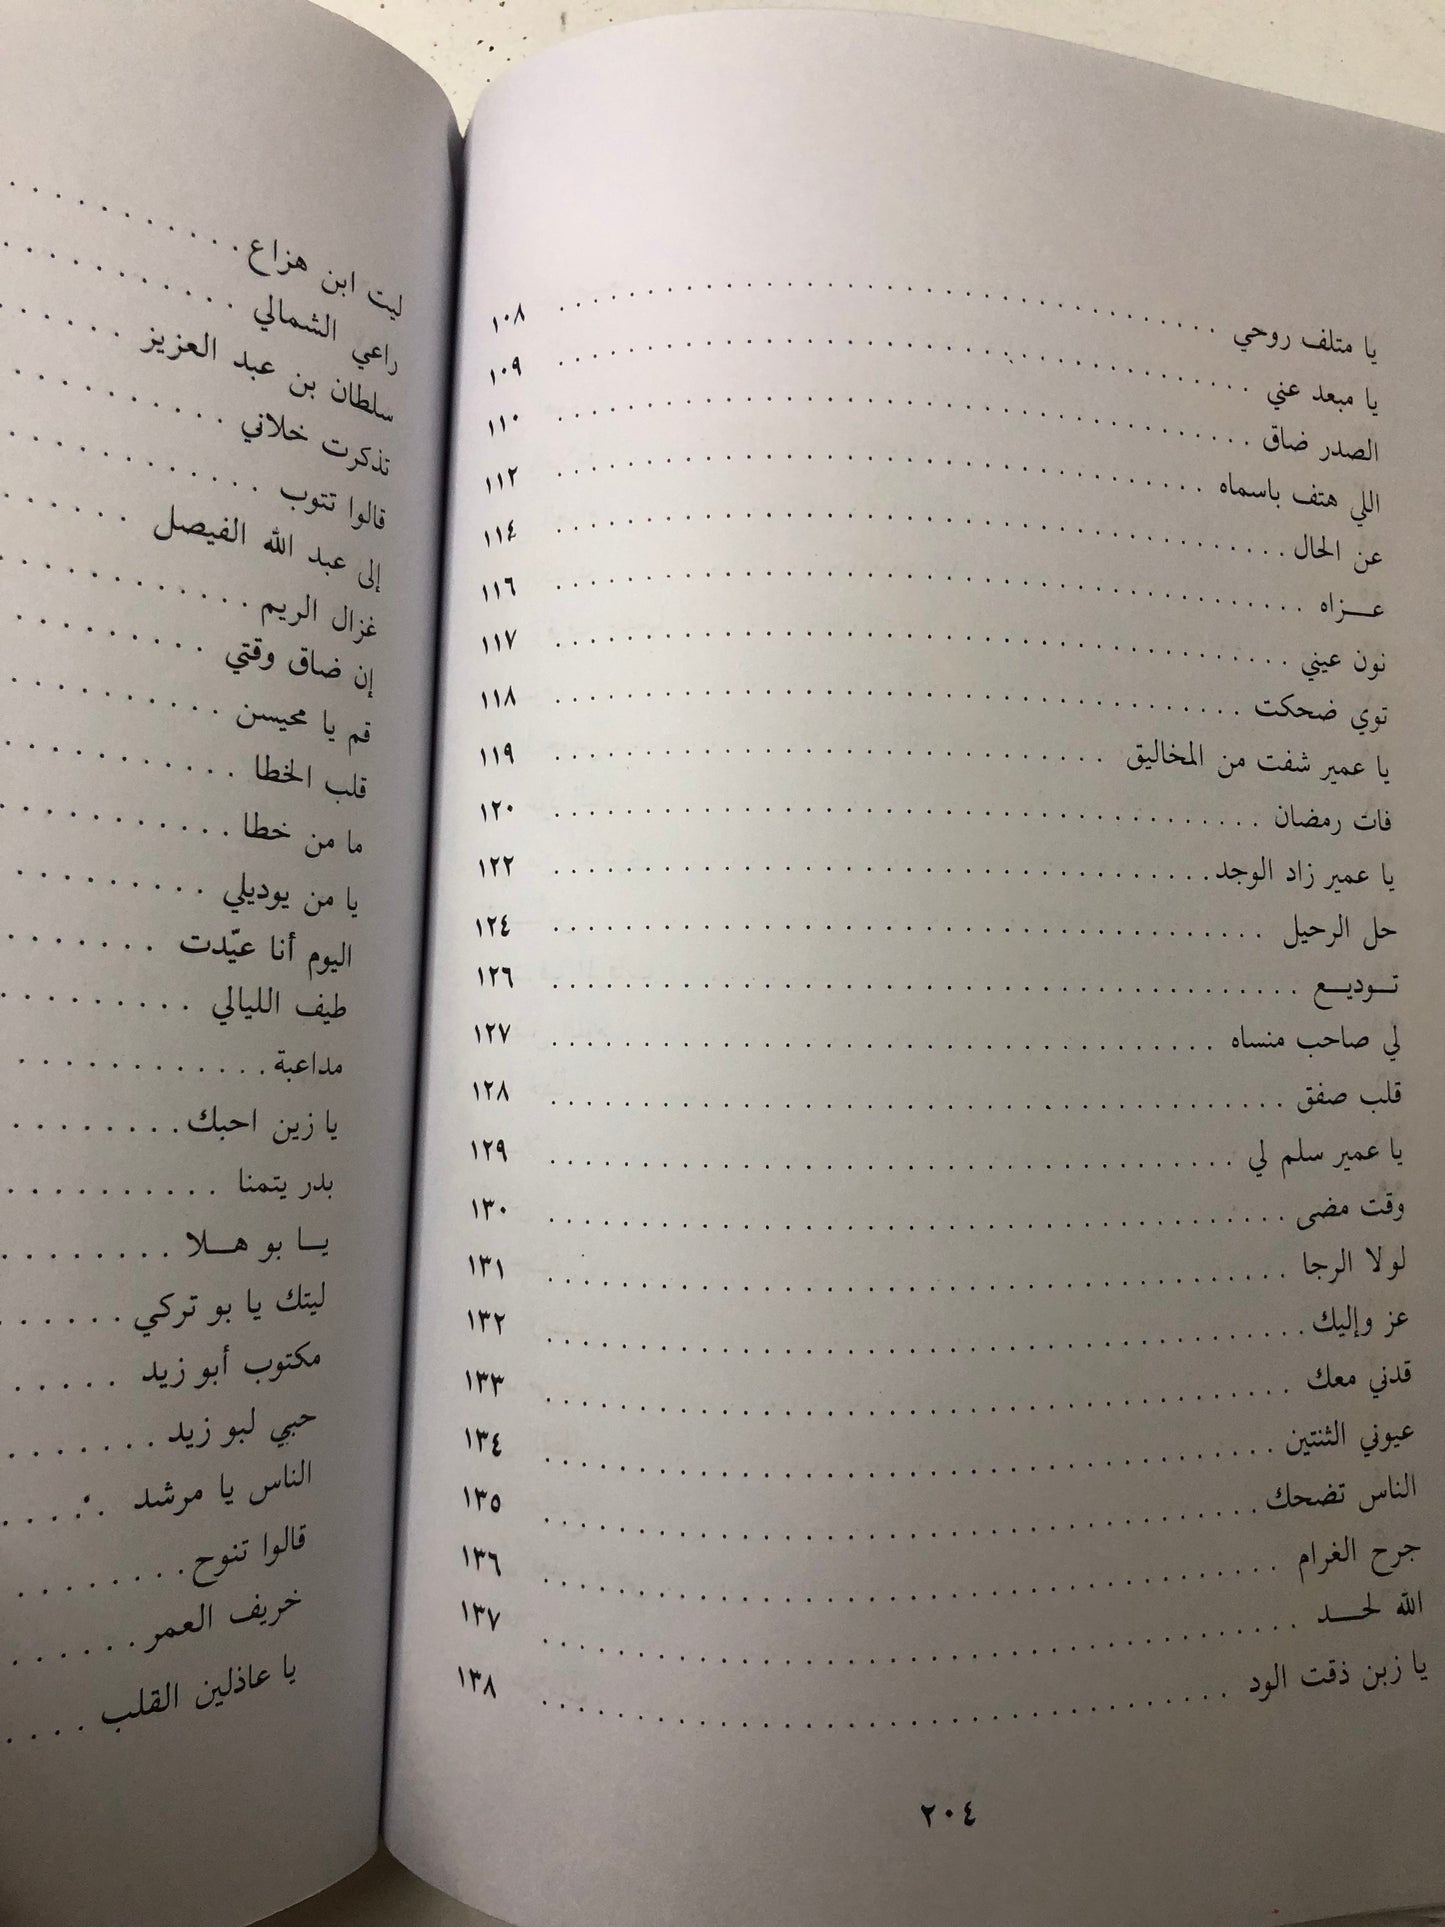 يا متلف روحي . . . . . . . . . . . . . . . . . . . . ١٠٨
يا مبعد عني . . . . . . . . . . . . . . . . . . . . ١٠٩
الصدر ضاق . . . . . . . . . . . . . . . . . . . . ١١٠
اللي هتف باسماه . . . . . . . . . . . . . . . . . . . . ١١٢
عن الحال . . . . . . . . . . . . . . . . . . . . ١١٤
عـــزاه . . . . . . . . . . . . . . . . . . . . ١١٦
نون عيني . . . . . . . . . . . . . . . . . . . . ١١٧
توي ضحكت . . . . . . . . . . . . . . . . . . . . ١١٨
يا عمير شفت من المخاليق . . . . . . . . . . . . . . . . . . . . ١١٩
فات رمضان . . . . . . . . . . . . . . . . . . . . ١٢٠
يا عمير زاد الوجد . . . . . . . . . . . . . . . . . . . . ١٢٢
حل الرحيل . . . . . . . . . . . . . . . . . . . . ١٢٤
تــوديــع . . . . . . . . . . . . . . . . . . . . ١٢٦
لي صاحب منساه . . . . . . . . . . . . . . . . . . . . ١٢٧
قلب صفق . . . . . . . . . . . . . . . . . . . . ١٢٨
يا عمير سلم لي . . . . . . . . . . . . . . . . . . . . ١٢٩
وقت مضى . . . . . . . . . . . . . . . . . . . . ١٣٠
لولا الرجا . . . . . . . . . . . . . . . . . . . . ١٣١
عز وإليك . . . . . . . . . . . . . . . . . . . . ١٣٢
قدني معك . . . . . . . . . . . . . . . . . . . . ١٣٣
عيوني الثنتين . . . . . . . . . . . . . . . . . . . . ١٣٤
الناس تضحك . . . . . . . . . . . . . . . . . . . . ١٣٥
جرح الغرام . . . . . . . . . . . . . . . . . . . . ١٣٦
الله لحـــد . . . . . . . . . . . . . . . . . . . . ١٣٧
يا زبن ذقت الود . . . . . . . . . . . . . . . . . . . . ١٣٨
٢٠٤
ليت ابن هزاع . . . . . . . . . .
راعي الشمالي . . . . . . . . . .
سلطان بن عبد العزيز . . . . . .
تذكرت خلاني . . . . . . . . . .
قالوا تتوب . . . . . . . . . .
إلى عبد الله الفيصل . . . . . .
غزال الريم . . . . . . . . . .
إن ضاق وقتي . . . . . . . . .
قم يا محيسن . . . . . . . . . .
قلب الخطا . . . . . . . . . .
ما من خطا . . . . . . . . . .
يا من يوديلي . . . . . . . . .
اليوم أنا عيّدت . . . . . . .
طيف الليالي . . . . . . . . .
مداعبة . . . . . . . . . . . .
يا زين احبك . . . . . . . .
بدر يتمنا . . . . . . . . . .
يــا بو هــلا . . . . . . . .
ليتك يا بو تركي . . . . . .
مكتوب أبو زيد . . . . .
حبي لبو زيد . . . . . . .
الناس يا مرشد . . . . .
قالوا تنوح . . . . . . . .
خريف العمر . . . . . .
يا عاذلين القلب . . . .